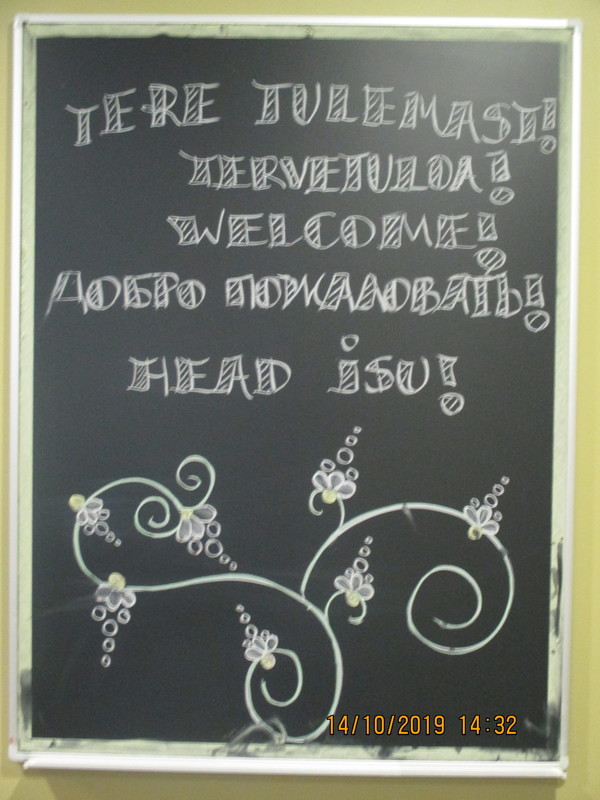 TERE TULEMAST!
TERVETULOA!
WELCOME!
ДОБРО ПОЖАЛОВАТЬ!
HEAD iSU!
14/10/2019 14:32